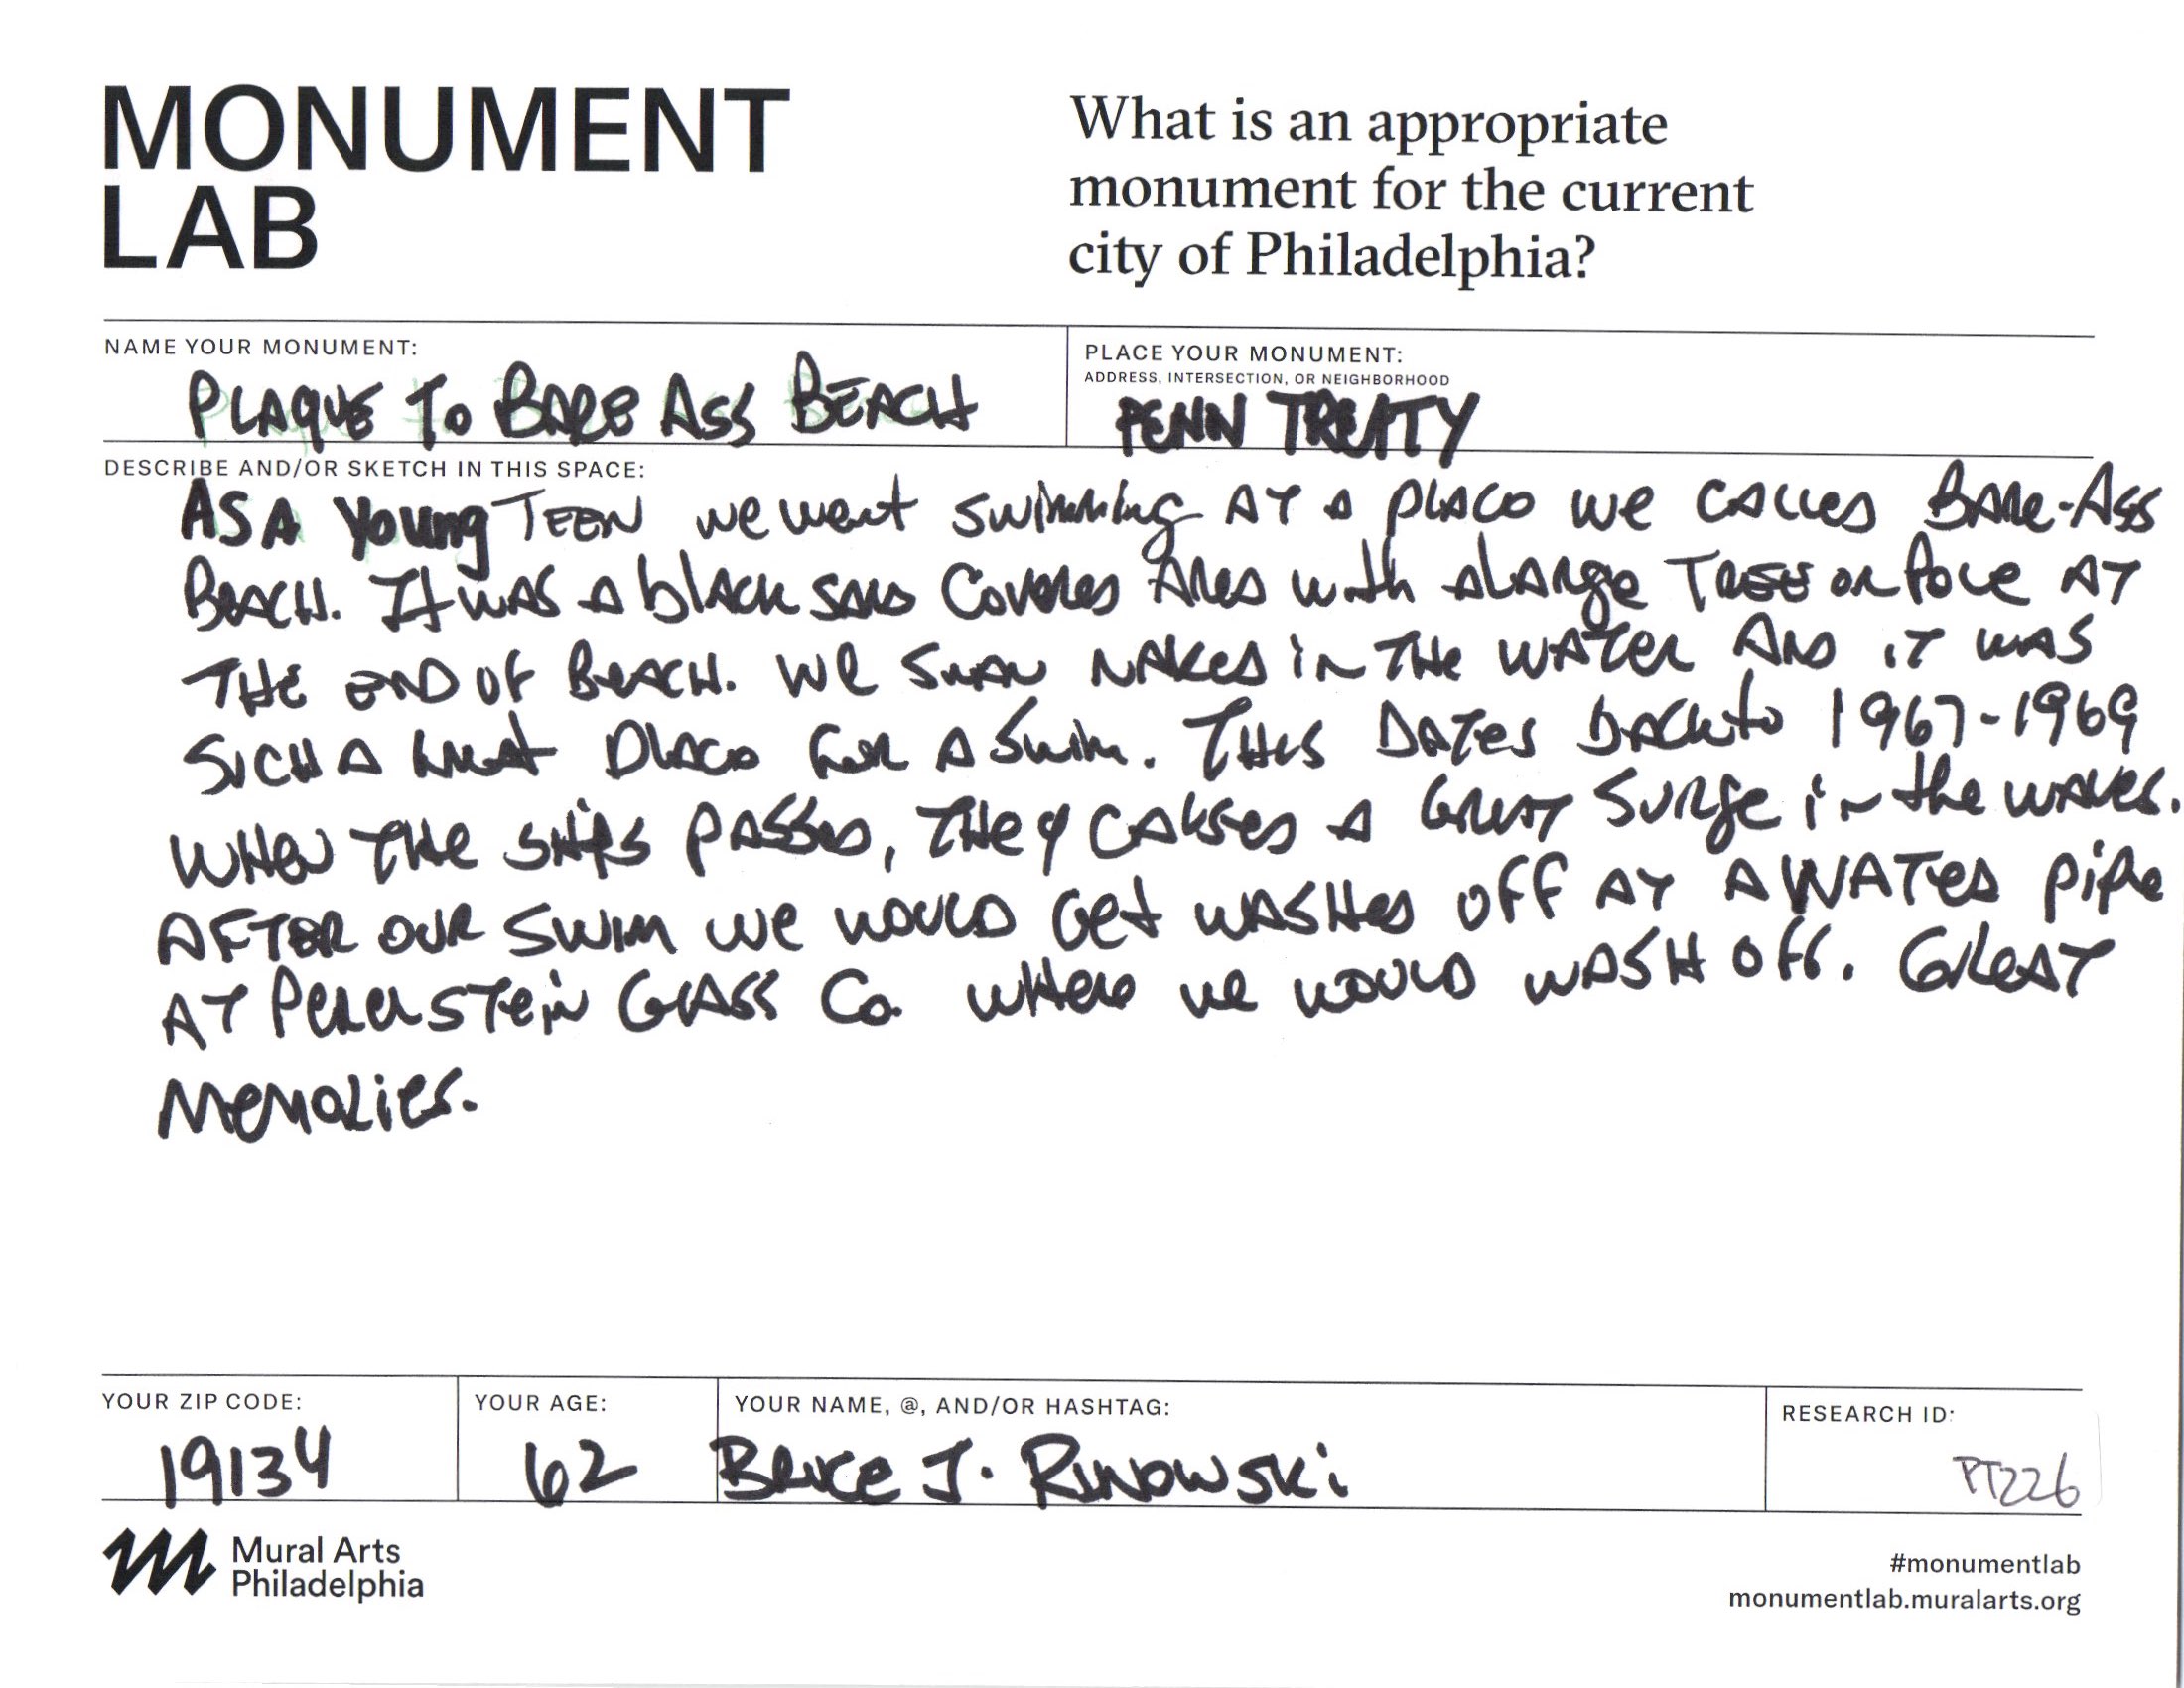 MONUMENT
LAB
What is an appropriate
monument for the current
city of Philadelphia?
NAME YOUR MONUMENT:
PLAQUE TO BARE ASS BEACH
PLACE YOUR MONUMENT:
ADDRESS, INTERSECTION, OR NEIGHBORHOOD
PENN TREATY
DESCRIBE AND/OR SKETCH IN THIS SPACE:
AS A Young TEEN we went swimming AT A PLACE we CALLED BARE-ASS
BEACH. It WAS A black SAND COVERED AREA with A LARge TREE OR POLE AT
THE END OF BEACH. WE SWAM NAKED IN THE WATER AND IT WAS
SUCH A GREAT PLACE FOR A SWIM. THIS DATES BACK to 1967-1969
WHEN THE SHIPS PASSED, THEY CAUSED A GREAT SURge in the WAVES.
AFTER OUR SWIM WE WOULD GET WASHED OFF AT A WATER PIPE
AT PERELSTEIN GLASS Co. WHERE WE WOULD WASH OFF. GREAT
MEMORIES.
YOUR ZIP CODE:
19134
YOUR AGE:
62
YOUR NAME, @, AND/OR HASHTAG:
BRUCE J. RINOWSKi
RESEARCH ID:
PT226
Mural Arts
Philadelphia
#monumentlab
monumentlab.muralarts.org